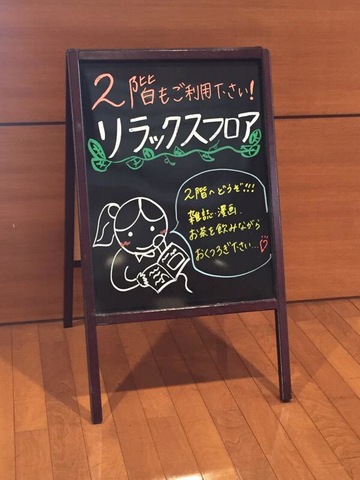 2階もご利用下さい!
リラックスフロア
2階へどうぞ!!!
雑誌.漫画.
お茶を飲みながら
おくつろぎ下さい…♡